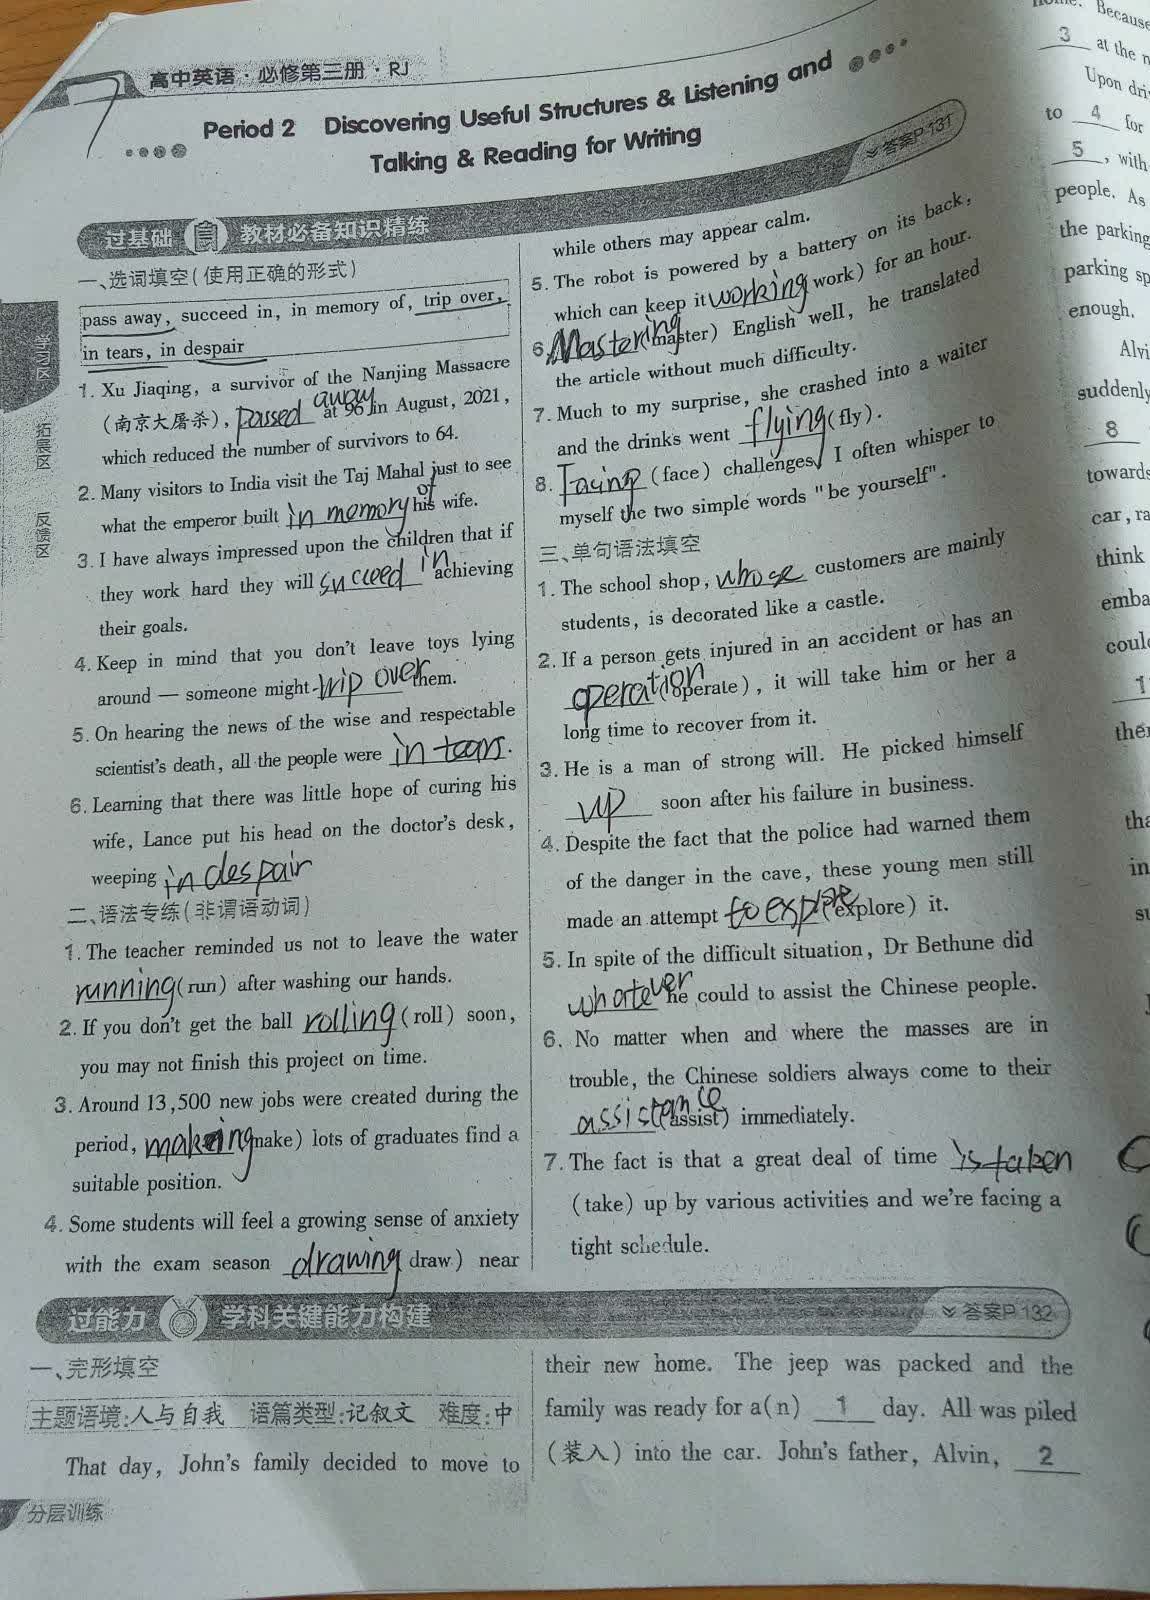 高中英语·必修第三册·RJ
Period 2 Discovering Useful Structures & Listening and
Talking & Reading for Writing
答案P 131
过基础 教材必备知识精练
一、选词填空(使用正确的形式)
pass away, succeed in, in memory of, trip over,
in tears, in despair
1. Xu Jiaqing, a survivor of the Nanjing Massacre
(南京大屠杀), passed away at 96 in August, 2021,
which reduced the number of survivors to 64.
2. Many visitors to India visit the Taj Mahal just to see
what the emperor built in memory of his wife.
3. I have always impressed upon the children that if
they work hard they will succeed in achieving
their goals.
4. Keep in mind that you don't leave toys lying
around — someone might trip over them.
5. On hearing the news of the wise and respectable
scientist's death, all the people were in tears.
6. Learning that there was little hope of curing his
wife, Lance put his head on the doctor's desk,
weeping in despair
二、语法专练(非谓语动词)
1. The teacher reminded us not to leave the water
running (run) after washing our hands.
2. If you don't get the ball rolling (roll) soon,
you may not finish this project on time.
3. Around 13,500 new jobs were created during the
period, making (make) lots of graduates find a
suitable position.
4. Some students will feel a growing sense of anxiety
with the exam season drawing draw) near
while others may appear calm.
5. The robot is powered by a battery on its back,
which can keep it working work) for an hour.
6. Mastering (master) English well, he translated
the article without much difficulty.
7. Much to my surprise, she crashed into a waiter
and the drinks went flying (fly).
8. Facing (face) challenges, I often whisper to
myself the two simple words "be yourself".
三、单句语法填空
1. The school shop, whose customers are mainly
students, is decorated like a castle.
2. If a person gets injured in an accident or has an
operation (operate), it will take him or her a
long time to recover from it.
3. He is a man of strong will. He picked himself
up soon after his failure in business.
4. Despite the fact that the police had warned them
of the danger in the cave, these young men still
made an attempt to explore (explore) it.
5. In spite of the difficult situation, Dr Bethune did
whatever he could to assist the Chinese people.
6. No matter when and where the masses are in
trouble, the Chinese soldiers always come to their
assistance (assist) immediately.
7. The fact is that a great deal of time is taken
(take) up by various activities and we're facing a
tight schedule.
过能力 学科关键能力构建
答案P 132
一、完形填空
主题语境:人与自我 语篇类型:记叙文 难度:中
That day, John's family decided to move to
their new home. The jeep was packed and the
family was ready for a(n) 1 day. All was piled
(装入) into the car. John's father, Alvin, 2
分层训练
拓展区
反馈区
Because
3 at the
Upon
to 4 for
5, with
people. As
the parking
parking
enough.
suddenly
8
towards
car,
think